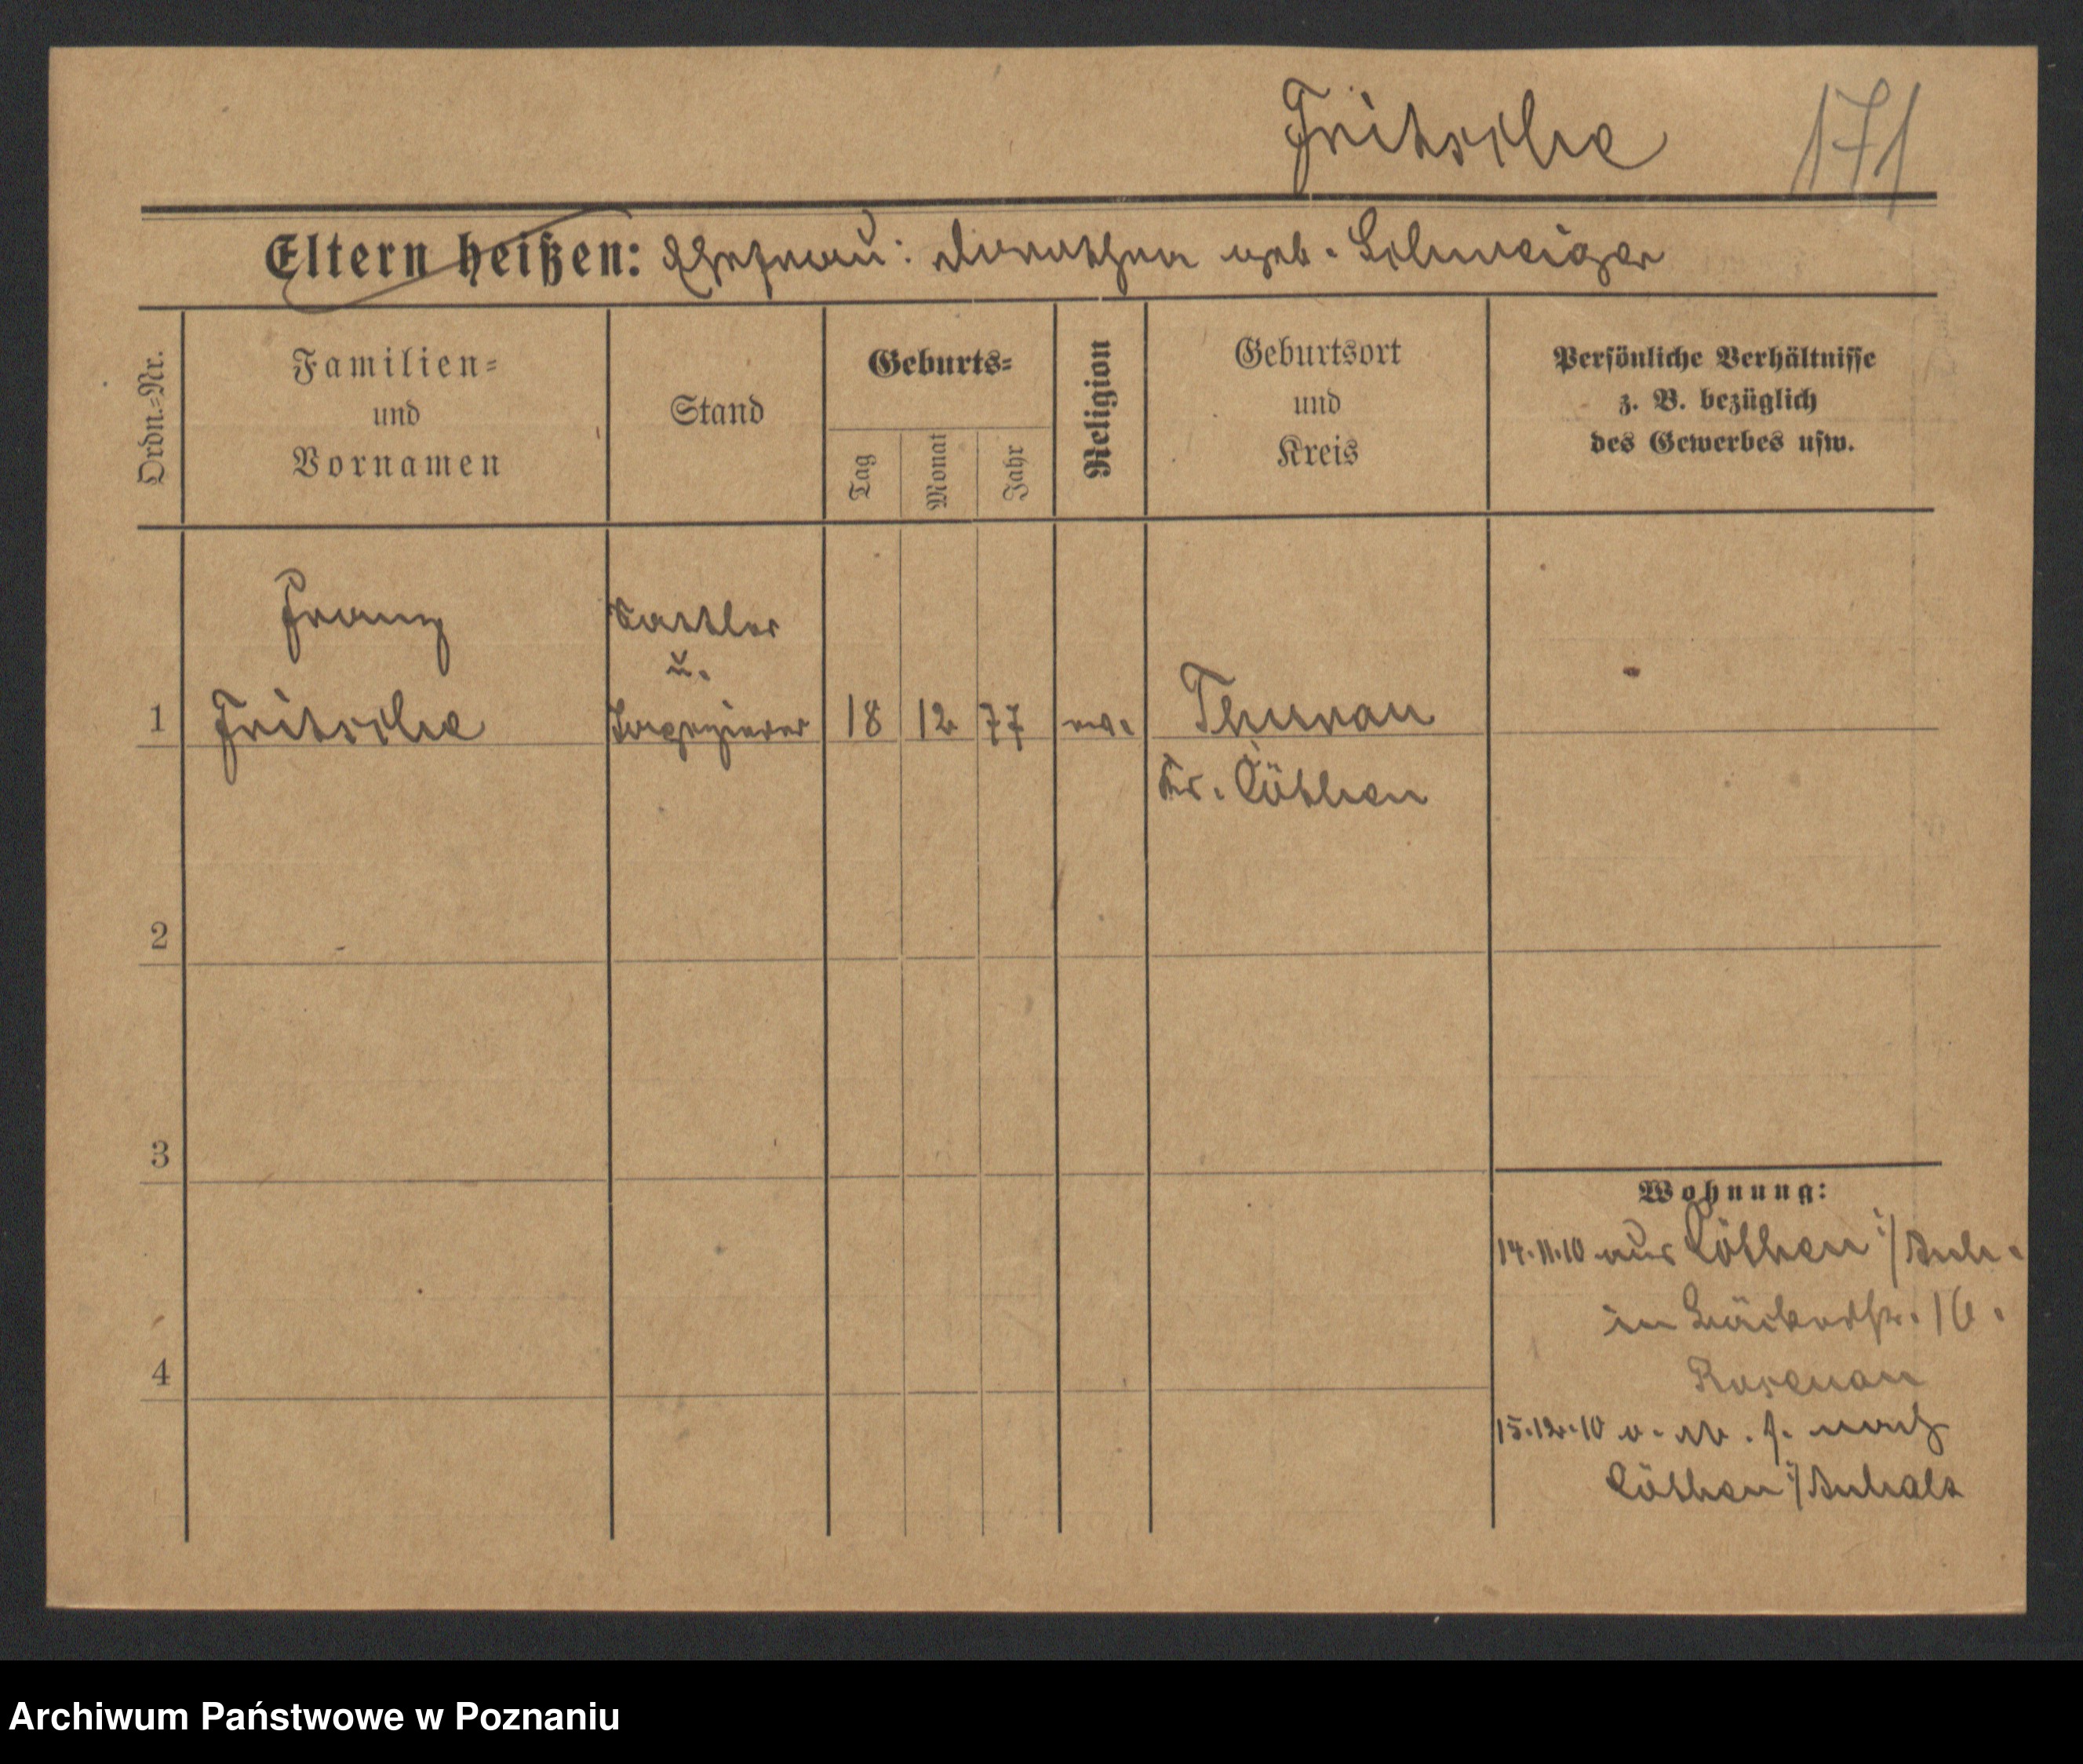 Fritsche 171
Eltern heißen: Ehefrau: Dorothea geb. Schweiger
Ordn.-Nr.
Familien-
und
Vornamen
Stand
Geburts-
Tag
Monat
Jahr
Religion
Geburtsort
und
Kreis
Persönliche Verhältnisse
z. B. bezüglich
des Gewerbes usw.
Franz
Sattler
u.
1 Fritsche Tapezierer 18 12 77 ev. Thurau
Kr. Cöthen
2
3
Wohnung:
14.11.10 aus Cöthen i/Anh.
in 16.
4
Rosenau
15.12.10 nach
Cöthen i/Anhalt
Archiwum Państwowe w Poznaniu